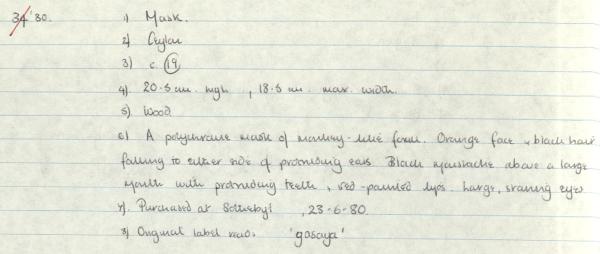 34'80. 1) Mask.
2) Ceylon
3) c. 19
4) 20.5 cm. high, 18.5 cm. max. width.
5) Wood
6) A polychrome mask of monkey-like form. Orange face & black hair
falling to either side of protruding ears. Black moustache above a large
mouth with protruding teeth, red-painted lips. Large, staring eyes
7) Purchased at Sotheby's, 23-6-80.
8) Original label reads 'gosaya'